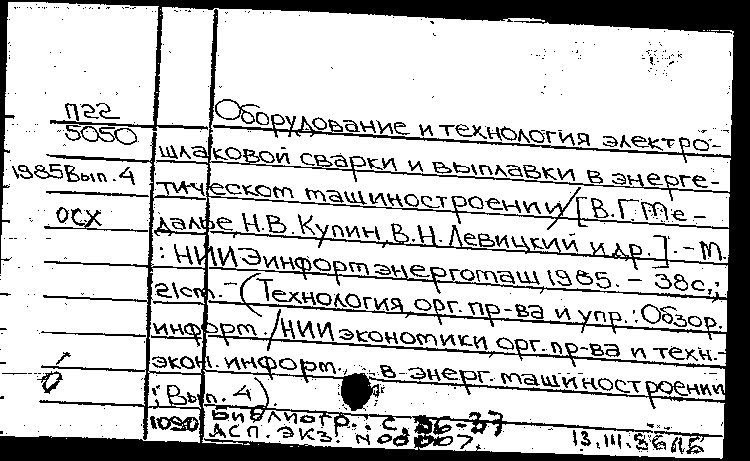 П22
5050
1985 Вып. 4
ОСХ
Оборудование и технология электро-
шлаковой сварки и выплавки в энерге-
тическом машиностроении / [В.Г. Ме-
далье, Н.В. Купин, В.Н. Левицкий и др.]. - М.
: НИИЭинформэнергомаш, 1985. - 38 с.;
21 см. - (Технология, орг. пр-ва и упр. : Обзор.
информ. / НИИ экономики, орг. пр-ва и техн.-
экон. информ. в энерг. машиностроении
; Вып. 4)
Библиогр.: с. 36-37
1090 АСП. ЭКЗ.
13.III.86